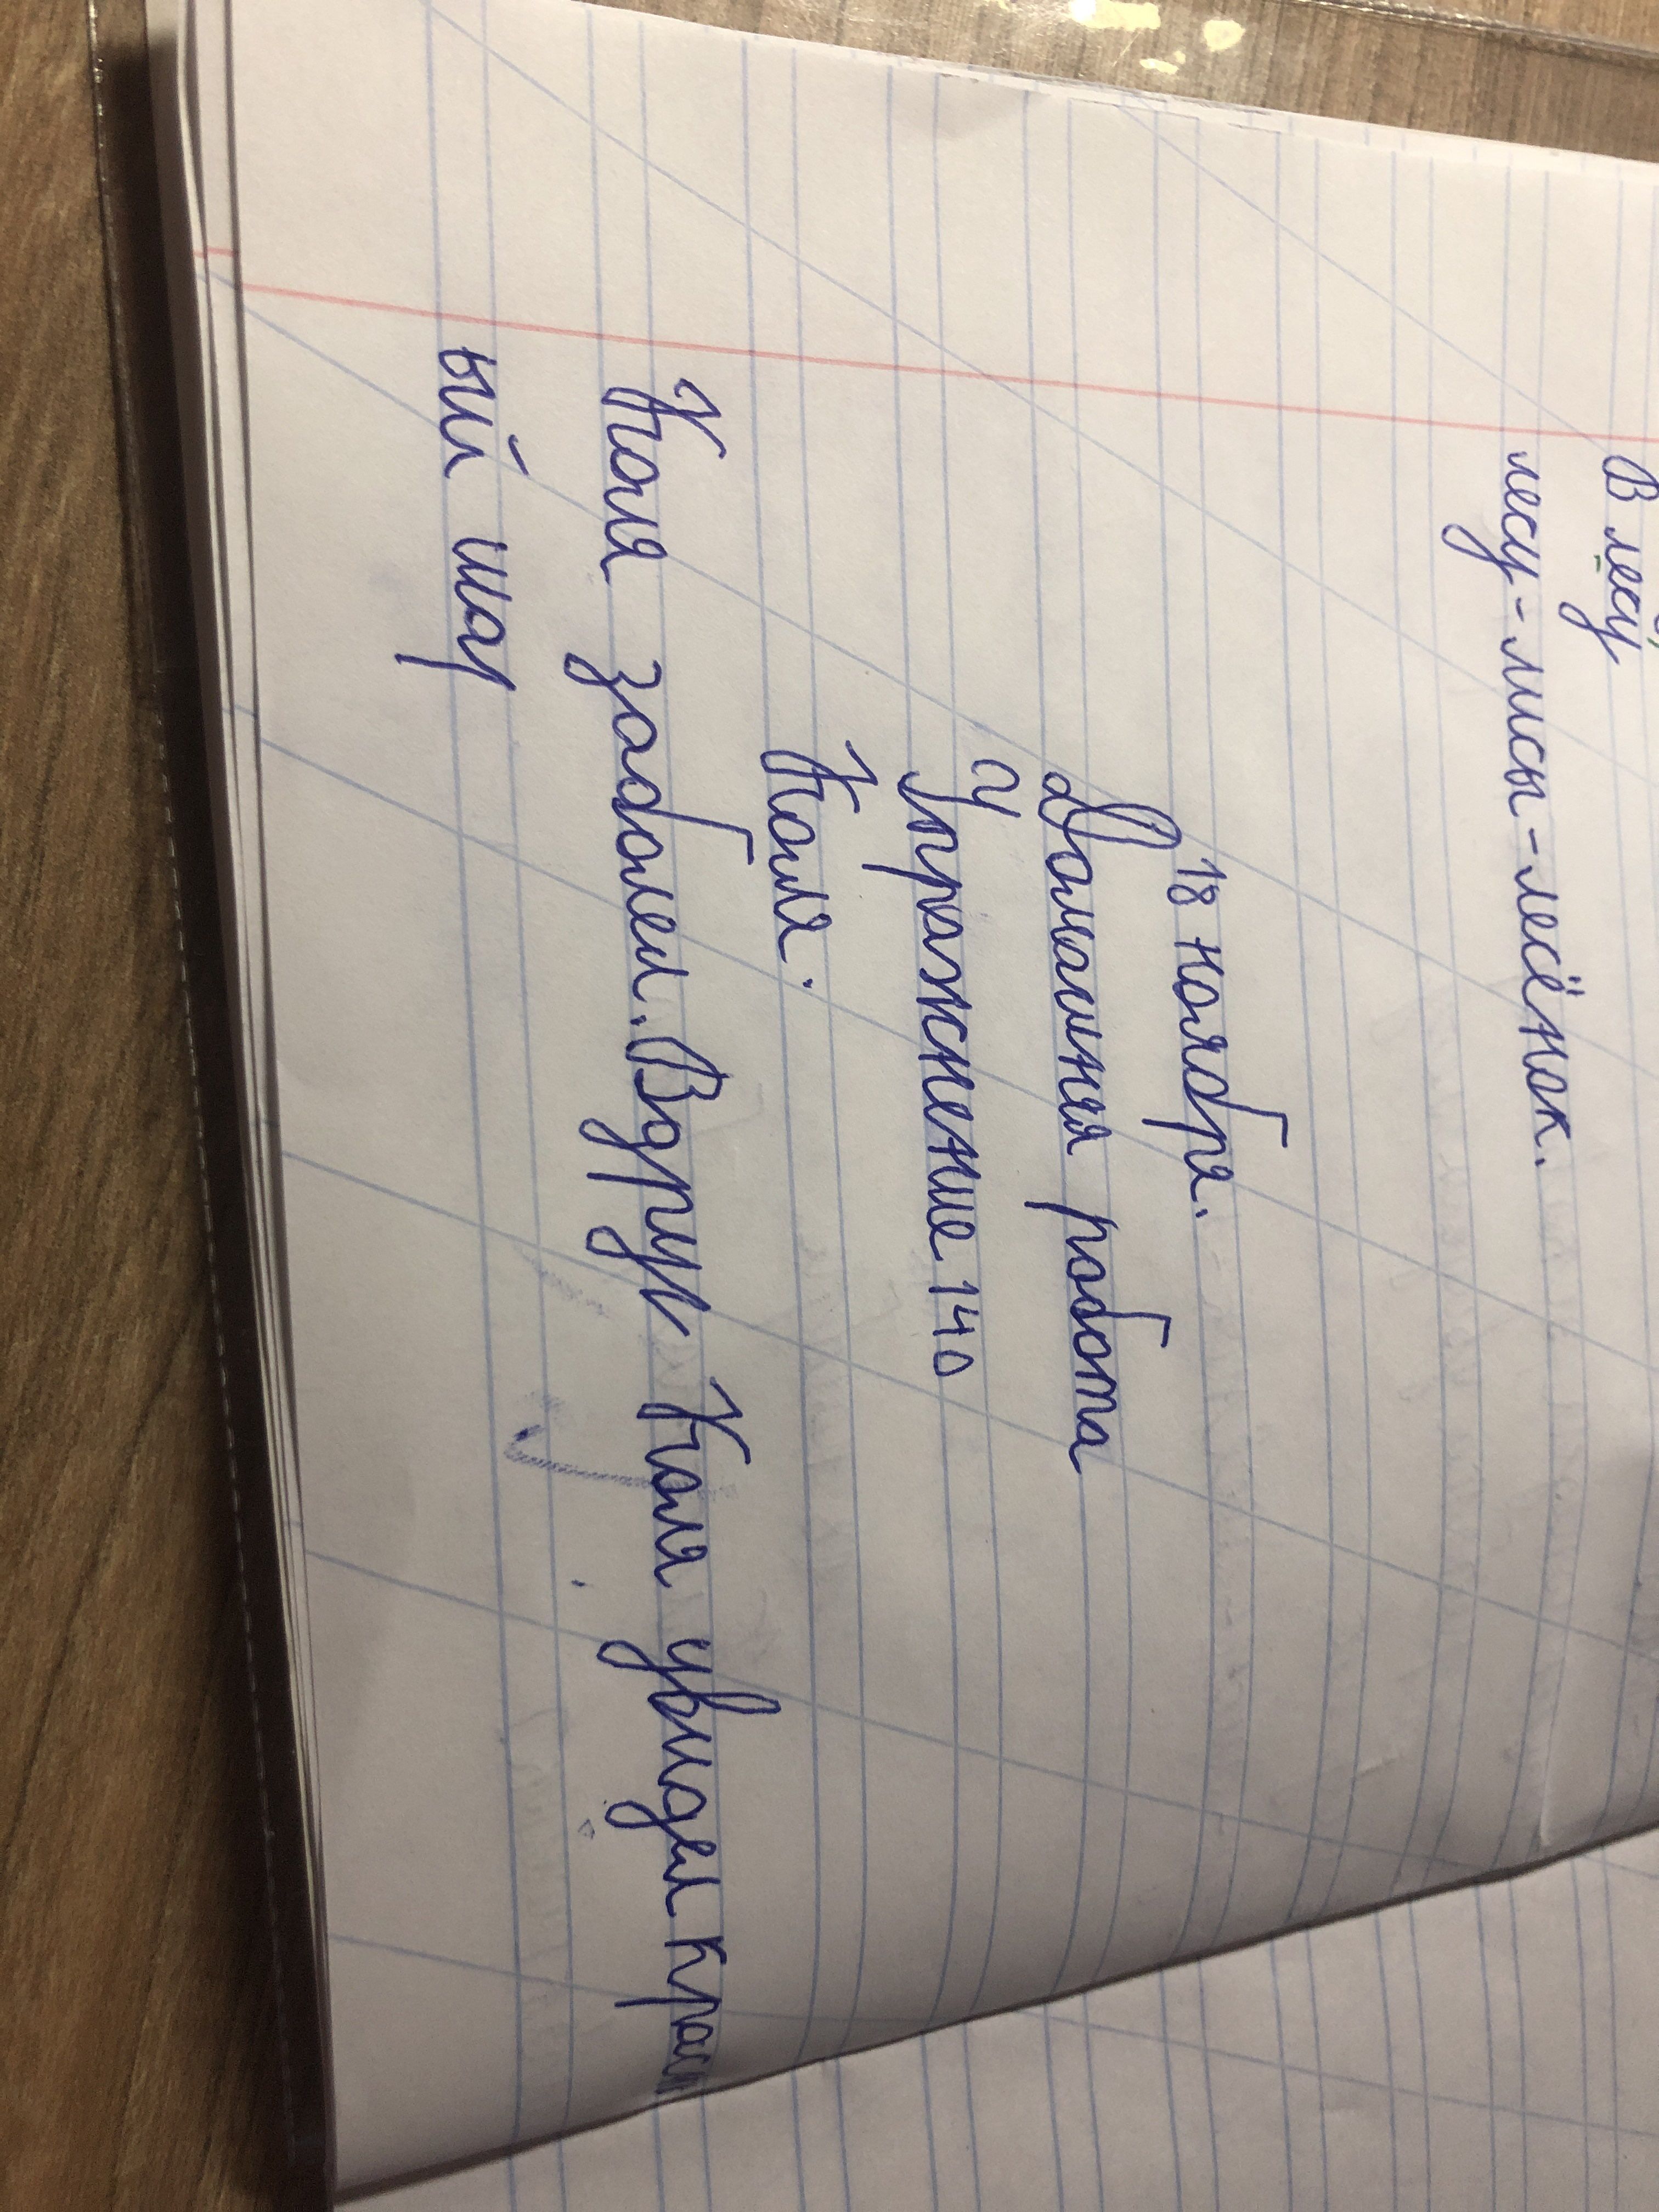 В лесу
лесу-лисы-лесёнок.
18 ноября.
Домашняя работа
Упражнение 140
Коля.
Коля заболел. Вдруг Коля увидел
ый шар